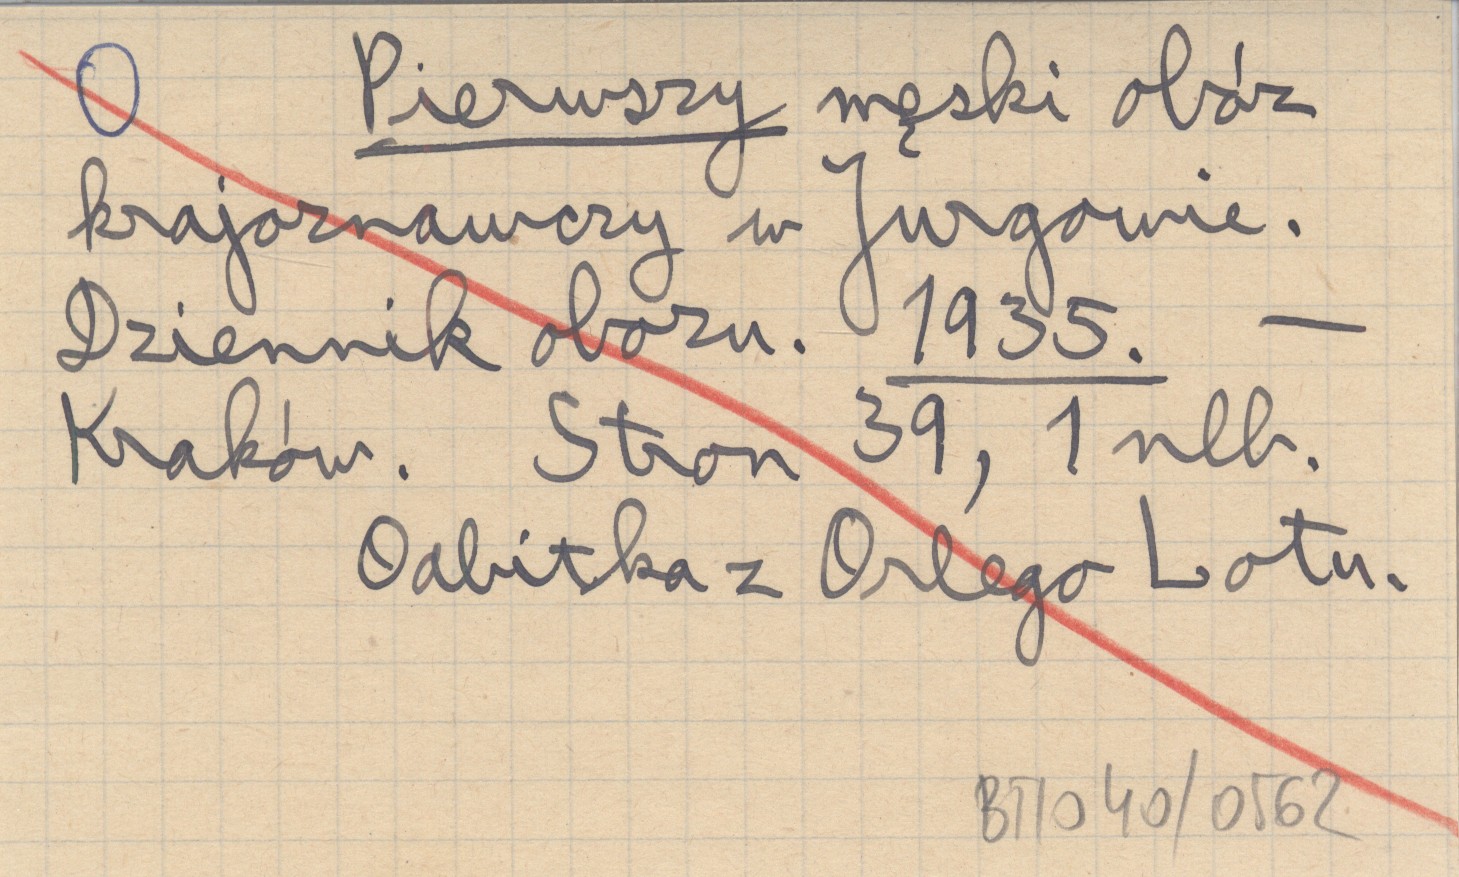 Pierwszy męski obóz
krajoznawczy w Jurgowie.
Dziennik obozu. 1935. —
Kraków. Stron 39, 1 nlb.
Odbitka z Orlego Lotu.
40/0562